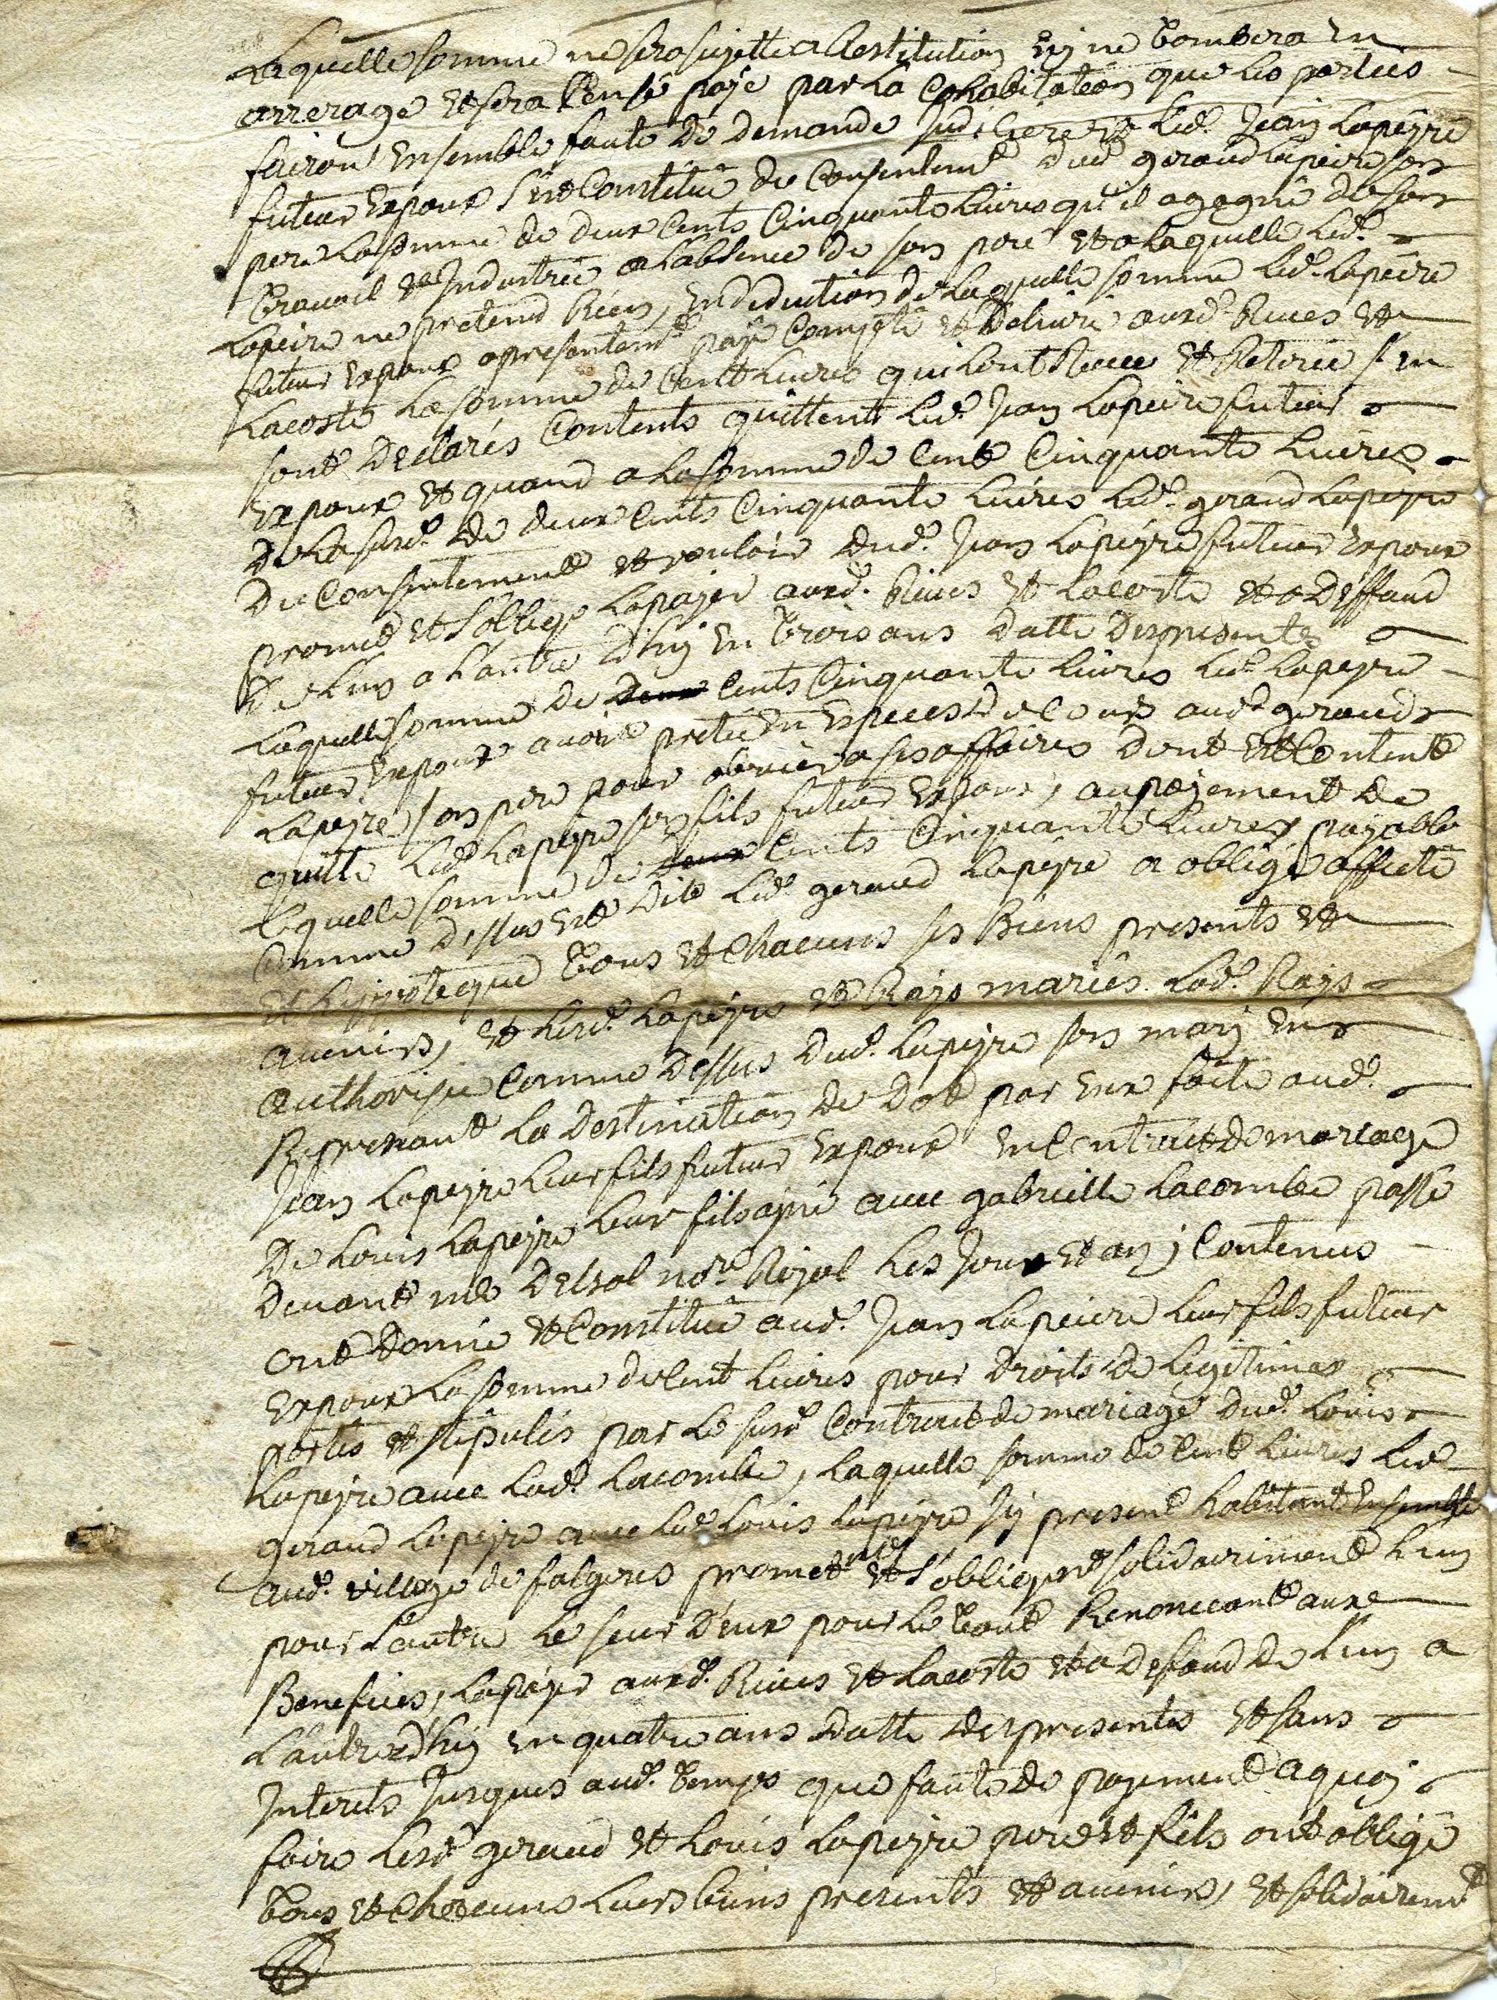 Laquelle somme ne sera sujette a Restitution Ny ne tombera En
arrerage et sera Censé paÿé par La Cohabitation que les parties
fairont Ensemble faute de demande Judiciere et Led. Jean Lapeÿre
futeur Expoux s'est Constitué du Consentem.t dud. geraud Lapeire son
pere La somme de deux Cents Cinquante Livres qu'il a gagné de son
travail et Industrie a L'absence de son pere et a Laquelle Led.
Lapeire ne pretend Rien, En deduction de Laquelle somme Led. Lapeire
futeur Expoux a presentem.t paÿé Compté et delivré auxd. Rives et
Lacoste La somme de Cent Livres qui Lont Receue et Retirée s'en
sont declarés Contents quittent Led. Jean Lapeire futeur
Expoux et quand a La somme de Cent Cinquante Livres
de La susd. de deux Cents Cinquante Livres Led. geraud Lapeyre
du Consentement et vouloir dud. Jean Lapeÿre futeur Expoux
promet et s'oblige La paÿer auxd. Rives et Lacoste et a deffaud
de L'un a L'autre d'huÿ En trois ans datte des presentes
Laquelle somme de Cents Cinquante Livres Led. Lapeyre
futeur Expoux avoit preté En Expeces de Cours aud. geraud
Lapeÿre son pere pour obvier a ses affaires dont Est Content
quitte Led. Lapeÿre son fils futeur Expoux, au paÿement de
Laquelle somme de Cents Cinquante Livres paÿable
Comme dessus Est dit Led. geraud Lapeÿre a obligé affecté
et hÿpotequé tous et Chacuns ses Biens presents et
avenirs, et Lesd. Lapeÿre et Raÿs mariés Lad. Raÿs
authorisée Comme dessus dud. Lapeÿre son marÿ En
Reprenant La destination de dot par Eux faite aud.
Jean Lapeyre Leur fils futeur Expoux En Contract de mariage
de Louis Lapeÿre Leur fils ainé avec gabrielle Lacombe passé
devant me delsol no.re Roÿal Les Jour et an ÿ Contenus
ont donné et Constitué aud. Jean Lapeire Leur fils futeur
Expoux La somme de Cent Livres pour droits de Legitime
portés et stipulés par Le susd. Contract de mariage dud. Louis
Lapeÿre avec Lad. Lacombe, Laquelle somme de Cent Livres Led.
geraud Lapeÿre avec Led. Louis Lapeÿre Jÿ present habitant Ensemble
aud. village de falgeres promettent et s'obligent solidairement L'un
pour L'autre Le seur d'eux pour Le tout Renonceant aux
Benefices, La paÿer auxd. Rives et Lacoste et a defaud de L'un a
L'autre d'huÿ En quatre ans datte des presentes et sans
Interets Jusques aud. temps que faute de paÿement a quoÿ
faire Lesd. geraud et Louis Lapeÿre pere et fils ont obligé
tous et Chacuns Leurs biens presents et avenirs, et solidairem.t